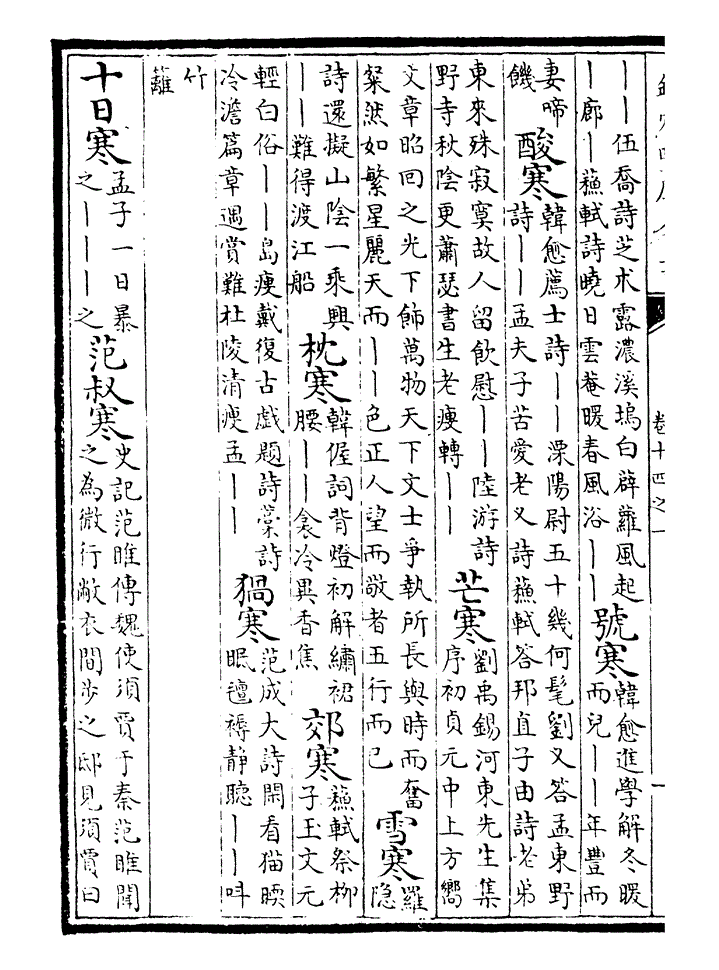 卷十四之一
——伍喬詩芝术露濃溪塢白辟蘿風起
—廊—蘇軾詩曉日雲菴暖春風浴——
號寒
韓愈進學解冬暖
而兒——年豐而
妻啼
饑
酸寒
韓愈薦士詩——溧陽尉五十幾何髦劉乂答孟東野
詩——孟夫子苦愛老乂詩蘇軾答邦直子由詩老弟
東來殊寂寞故人留飲慰——陸游詩
野寺秋陰更蕭瑟書生老瘦轉——
芒寒
劉禹錫河東先生集
序初貞元中上方嚮
文章昭回之光下飾萬物天下文士爭執所長與時而奮
粲然如繁星麗天而——色正人望而敬者五行而已
雪寒
羅
隐
詩還擬山陰一乘興
——難得渡江船
枕寒
韓偓詞背燈初解繡裙
腰——衾冷異香焦
郊寒
蘇軾祭柳
子玉文元
輕白俗——島瘦戴復古戲題詩藁詩
冷澹篇章遇賞難杜陵清瘦孟——
猧寒
范成大詩閑看猫暖
眠氊褥静聽——呌
竹
籬
十日寒
孟子一日暴
之———之
范叔寒
史記范睢傳魏使須賈于秦范睢聞
之為微行敝衣間步之邸見須賈曰